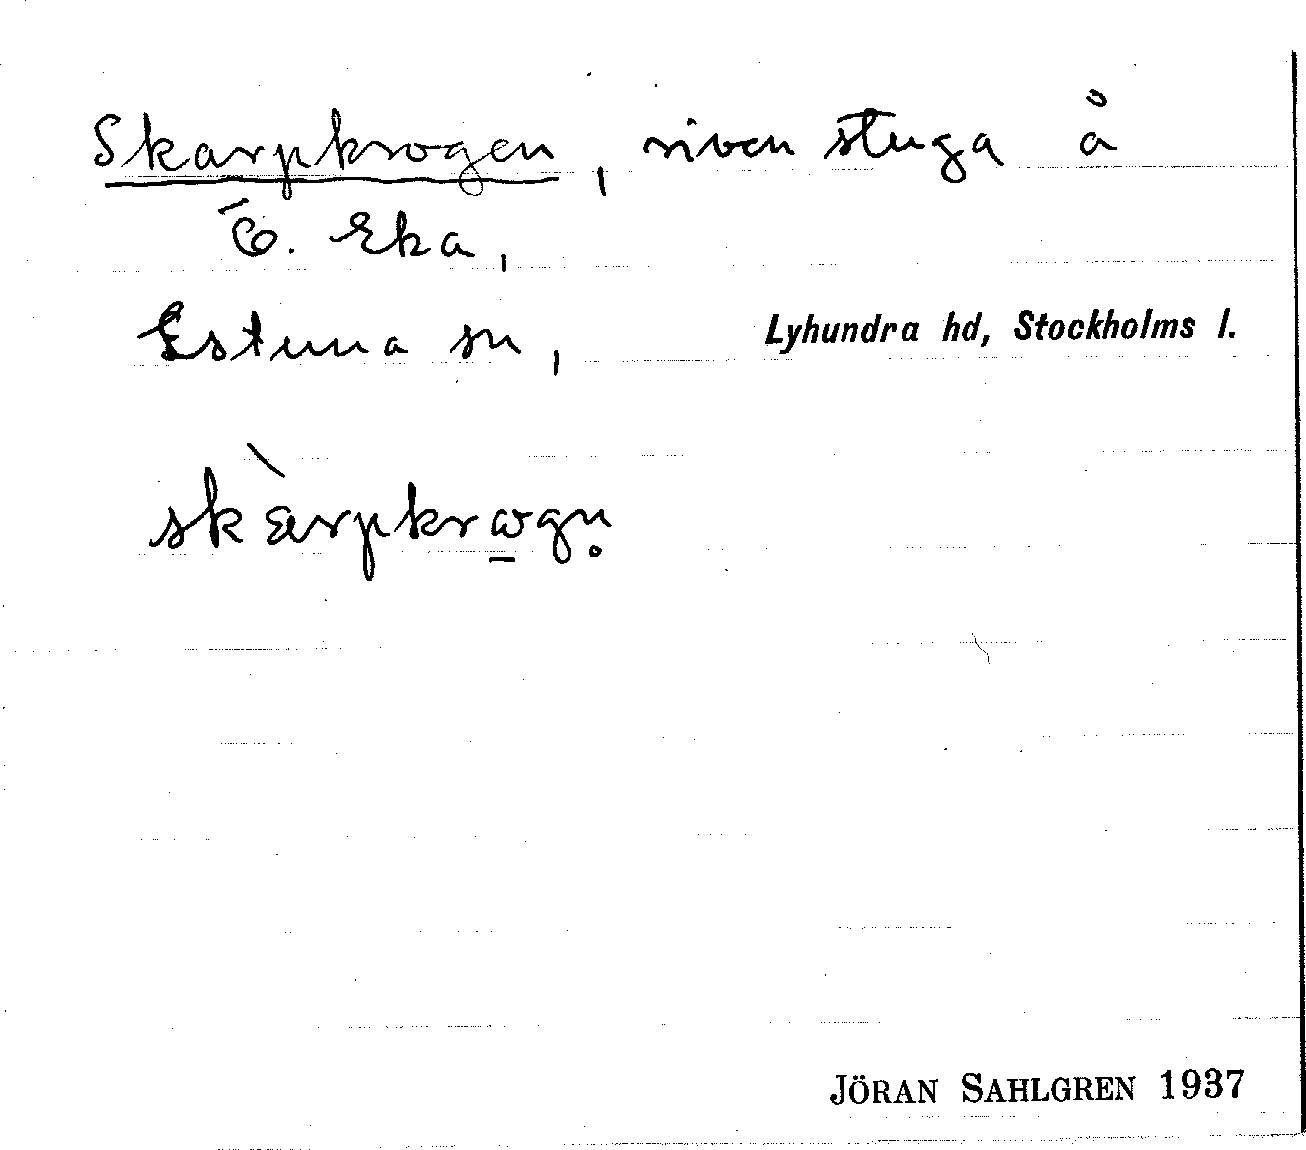 Skarpkrogen, riven stuga å
Ö. Eka,
Estuna sn, Lyhundra hd, Stockholms l.
skàrpkrωgn̥
JÖRAN SAHLGREN 1937